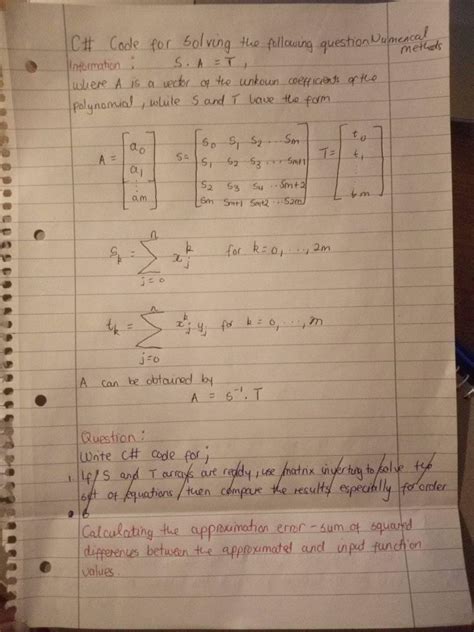 C# Code for Solving the following question Numerical methods
Information : S . A = T ,
where A is a vector of the unkown coefficients of the
polynomial, while S and T have the form
A = [a0 a1 ⋮ am] S = [s0 s1 s2 ... sm T = [t0 t1 ⋮ tm]
s1 s2 s3 ... sm+1
s2 s3 s4 ... sm+2
sm sm+1 sm+2 ... s2m]
s_k = ∑_{j=0}^{n} x_j^k for k = 0, ..., 2m
t_k = ∑_{j=0}^{n} x_j^k y_j for k = 0, ..., m
A can be obtained by
A = S^-1 . T
Question :
Write C# code for ;
1. If S and T arrays are ready, use matrix inverting to solve the
set of equations, then compare the results especially for order
6
Calculating the approximation error - sum of squared
differences between the approximated and input function
values.